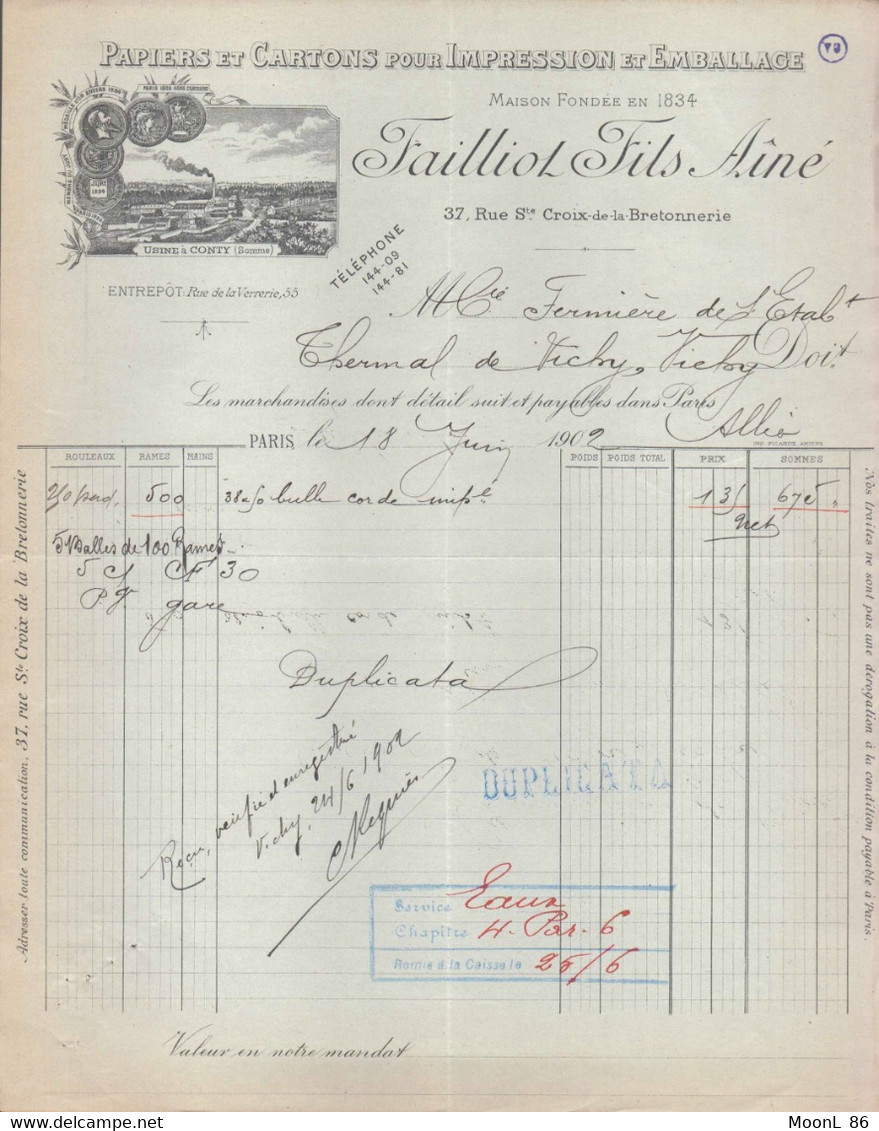 PAPIERS ET CARTONS POUR IMPRESSION ET EMBALLAGE
MAISON FONDÉE EN 1834
Failliot Fils Aîné
37, Rue Ste Croix-de-la-Bretonnerie
PARIS 1889 HORS CONCOURS
JURY 1894
USINE à CONTY (Somme)
TÉLÉPHONE
144-09
144-81
ENTREPÔT: Rue de la Verrerie, 55
M Cie Fermière de l'Etabt
Thermal de Vichy, Vichy Doit
Les marchandises dont détail suit et payables dans Paris
Allier
PARIS le 18 Juin 1902
IMP. PICARDE. AMIENS
ROULEAUX RAMES MAINS POIDS POIDS TOTAL PRIX SOMMES
500 38 x 50 bulle corde 1 35 675 "
Net
5 Balles de 100 Rames
5 CF 30
P.V. gare
Duplicata
Reçu, vérifié et enregistré
Vichy, 24/6 1902
DUPLICATA
Service Eaux
Chapitre 4. Par. 6
Remis à la Caisse le 25/6
Valeur en notre mandat
Adresser toute communication, 37, rue Ste Croix de la Bretonnerie
Nos traites ne sont pas une dérogation à la condition payable à Paris.
MoonL 86